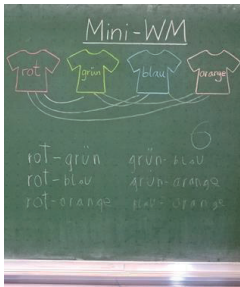 Mini-WM
rot grün blau orange
6
rot-grün grün-blau
rot-blau grün-orange
rot-orange blau-orange